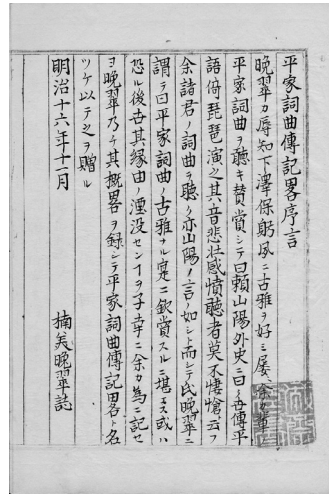 平家詞曲傳記畧序言
晩翠カ辱知下澤保躬夙ニ古雅ヲ好ミ屡余カ輩ニ
平家詞曲ヲ聽キ賛賞シテ曰頼山陽外史ニ曰ク毎傳平
語俯琵琶演之其音悲壮感憤聽者莫不悽愴云フ
余諸君ノ詞曲ヲ聽ク亦山陽ノ言ノ如シ而シテ氏晩翠ニ
謂テ曰平家詞曲ノ古雅ナル定ニ欽賞スルニ堪ヱス或ハ
恐ル後世其縁由ノ湮没センヿヲ子幸ニ余カ為ニ記セ
ヨ晩翠乃チ其概畧ヲ録シテ平家詞曲傳記畧ト名
ツケ以テ之ヲ贈ル
明治十六年十二月
楠美晩翠誌